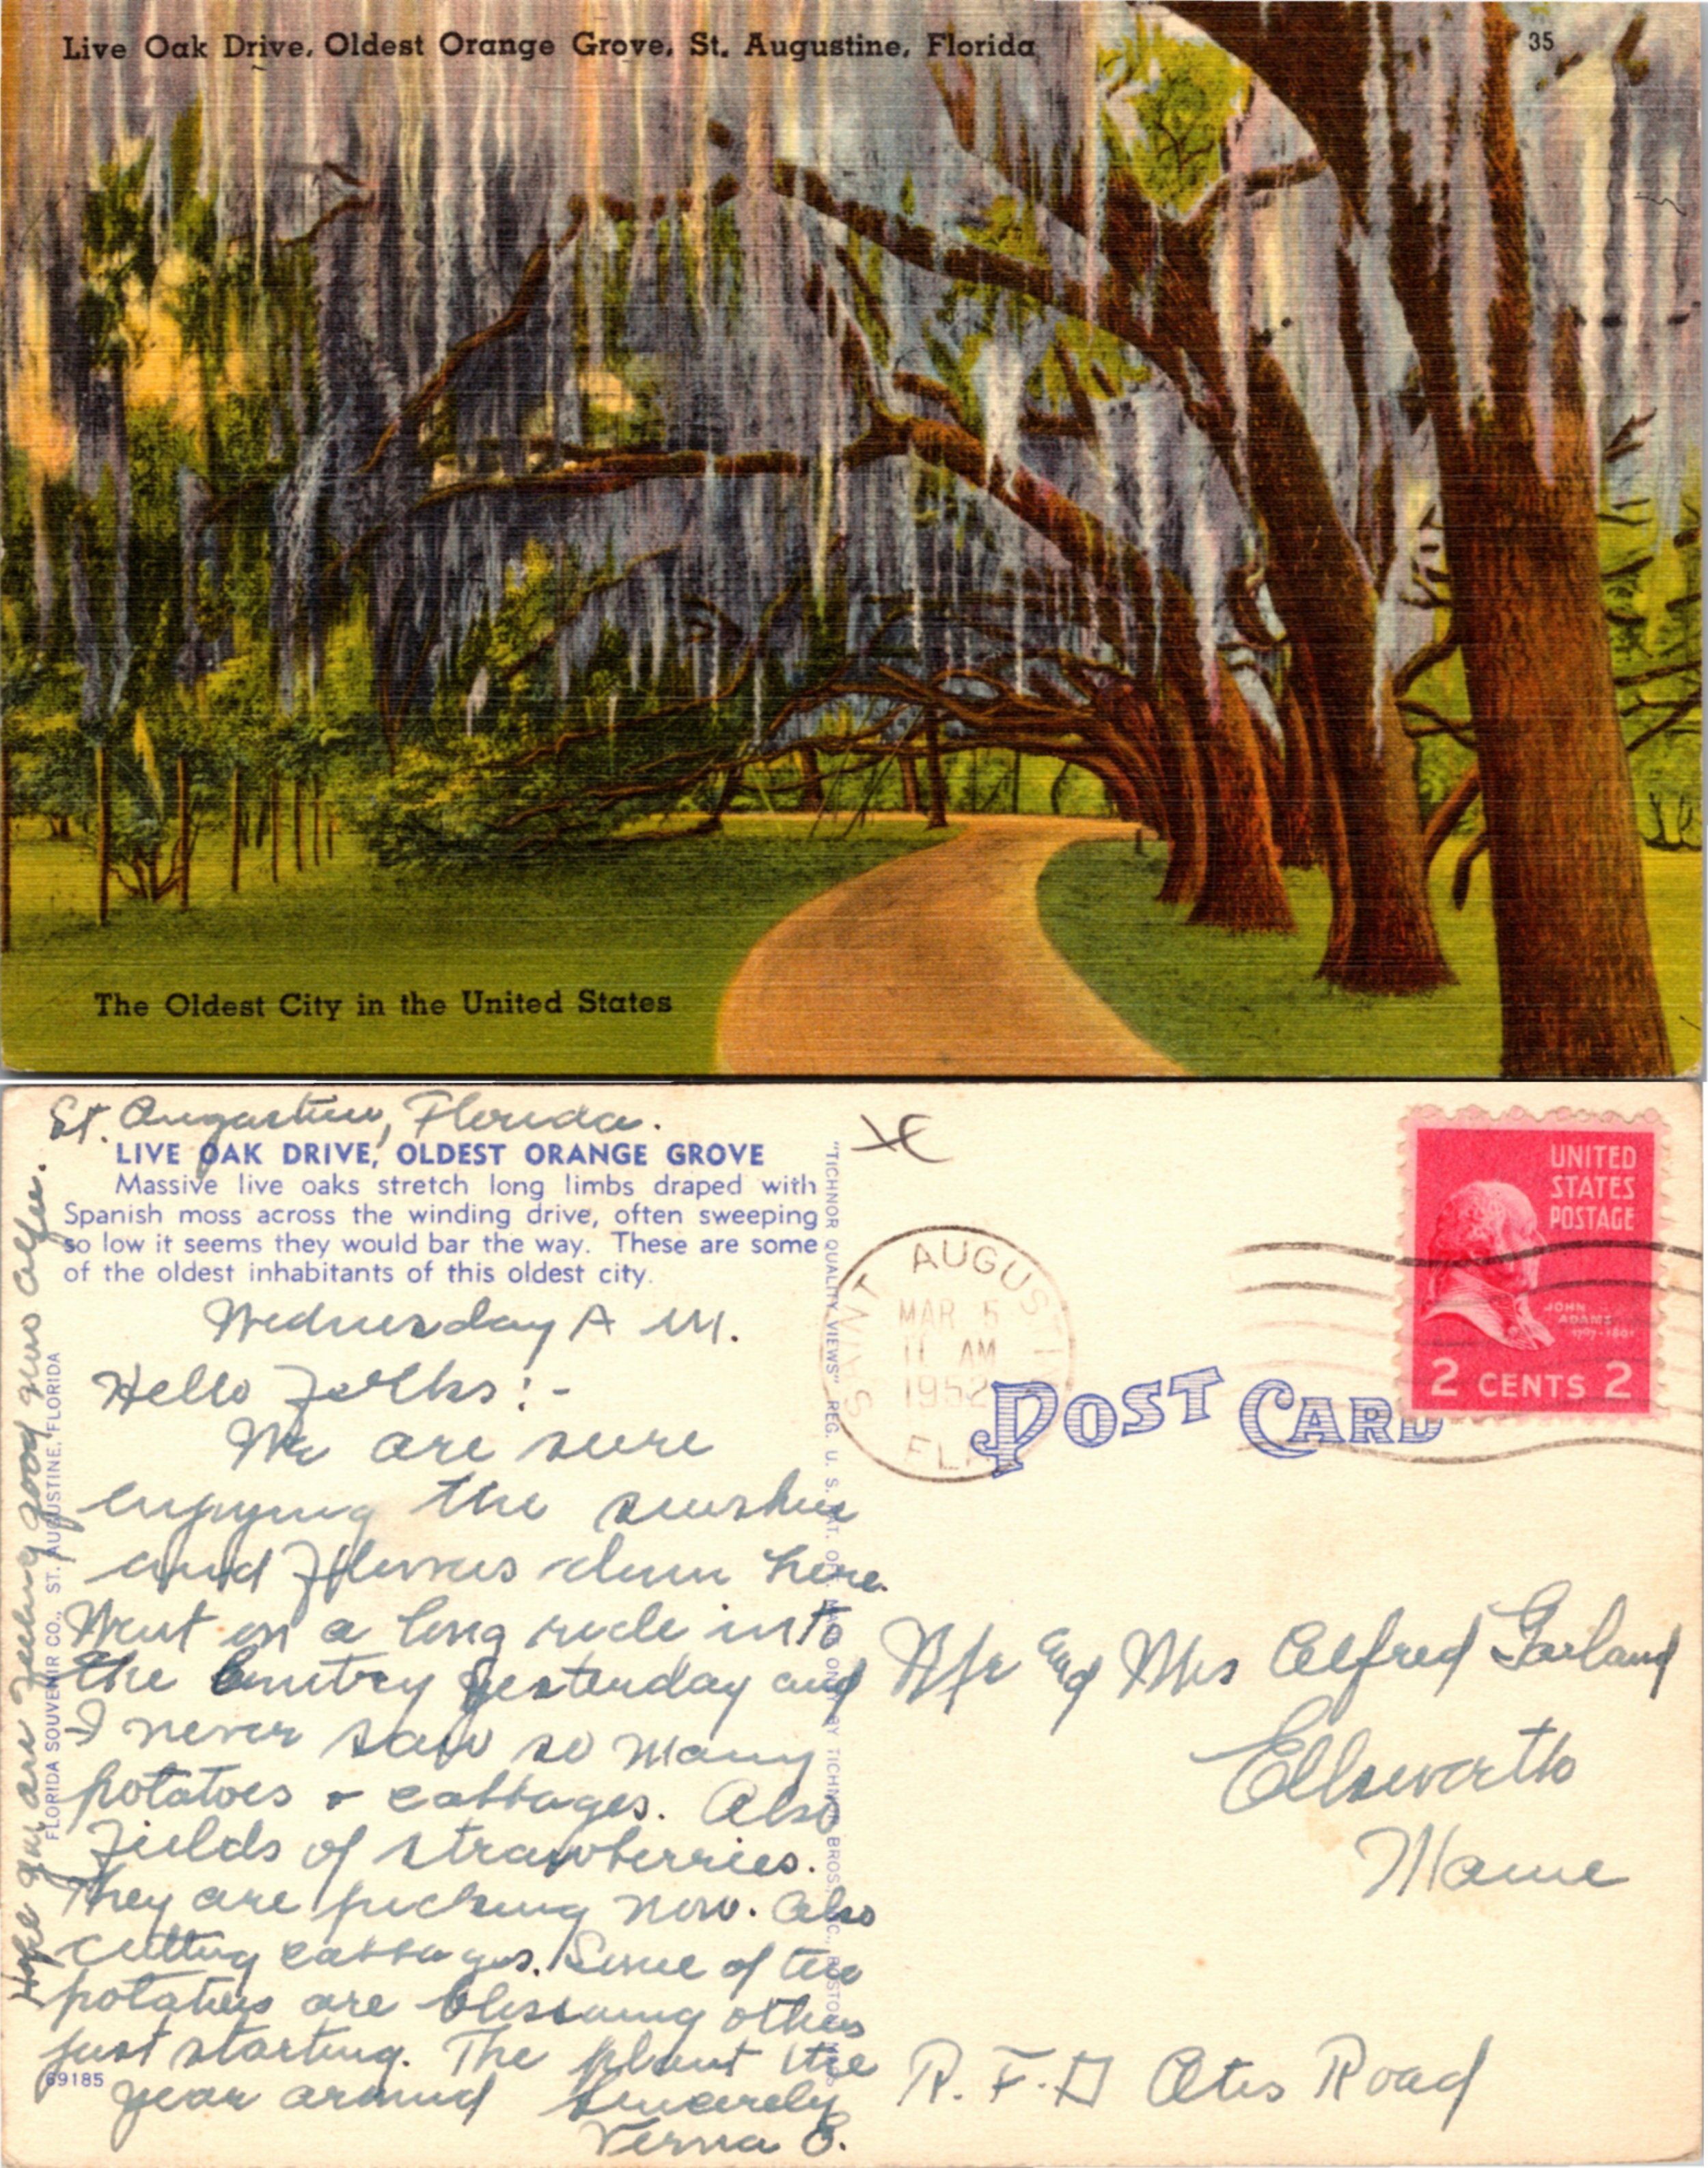 Live Oak Drive, Oldest Orange Grove, St. Augustine, Florida
35
The Oldest City in the United States
St. Augustine, Florida.
LIVE OAK DRIVE, OLDEST ORANGE GROVE
Massive live oaks stretch long limbs draped with
Spanish moss across the winding drive, often sweeping
so low it seems they would bar the way. These are some
of the oldest inhabitants of this oldest city.
Wednesday A M.
Hello Folks:-
We are sure
enjoying the sunshine
and Flowers down here.
Went on a long ride into
the Country Yesterday and
I never saw so many
potatoes & cabbages. Also
Fields of strawberries.
They are picking now. Also
cutting cabbages. Some of the
potatoes are blossoming others
just starting. The plant the
year around Sincerely
Verna E.
Hope you are feeling good now
FLORIDA SOUVENIR CO., ST. AUGUSTINE, FLORIDA
69185
"TICHNOR QUALITY VIEWS" REG. U. S. PAT. OFF. MADE ONLY BY TICHNOR BROS., INC., BOSTON, MASS.
SAINT AUGUSTINE
MAR 5
11 AM
1952
FLA
POST CARD
UNITED
STATES
POSTAGE
JOHN
ADAMS
1797-1801
2 CENTS 2
Mr and Mrs Alfred Garland
Ellsworth
Maine
R. F. D Otis Road